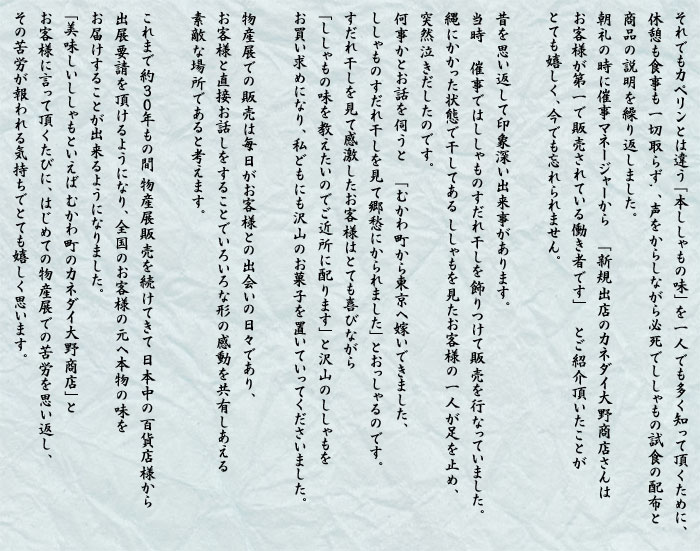 それでもカペリンとは違う「本ししゃもの味」を一人でも多く知って頂くために、
休憩も食事も一切取らず、声をからしながら必死でししゃもの試食の配布と
商品の説明を繰り返しました。
朝礼の時に催事マネージャーから 「新規出店のカネダイ大野商店さんは
お客様が第一で販売されている働き者です」 とご紹介頂いたことが
とても嬉しく、今でも忘れられません。
昔を思い返して印象深い出来事があります。
当時 催事ではししゃものすだれ干しを飾りつけて販売を行なっていました。
縄にかかった状態で干してある ししゃもを見たお客様の一人が足を止め、
突然泣きだしたのです。
何事かとお話を伺うと 「むかわ町から東京へ嫁いできました、
ししゃものすだれ干しを見て郷愁にかられました」とおっしゃるのです。
すだれ干しを見て感激したお客様はとても喜びながら
「ししゃもの味を教えたいのでご近所に配ります」と沢山のししゃもを
お買い求めになり、私どもにも沢山のお菓子を置いていってくださいました。
物産展での販売は毎日がお客様との出会いの日々であり、
お客様と直接お話しをすることでいろいろな形の感動を共有しあえる
素敵な場所であると考えます。
これまで約30年もの間 物産展販売を続けてきて 日本中の百貨店様から
出展要請を頂けるようになり、全国のお客様の元へ本物の味を
お届けすることが出来るようになりました。
「美味しいししゃもといえば むかわ町のカネダイ大野商店」と
お客様に言って頂くたびに、はじめての物産展での苦労を思い返し、
その苦労が報われる気持ちでとても嬉しく思います。